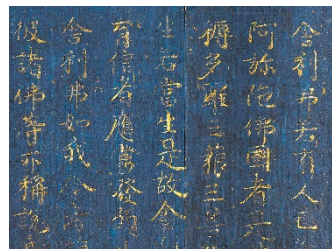 舍利弗若有人已
阿彌陀佛國者是
耨多羅三藐三
生若當生是故舍
有信者應當發願
舍利弗如我今者
彼諸佛等亦稱說